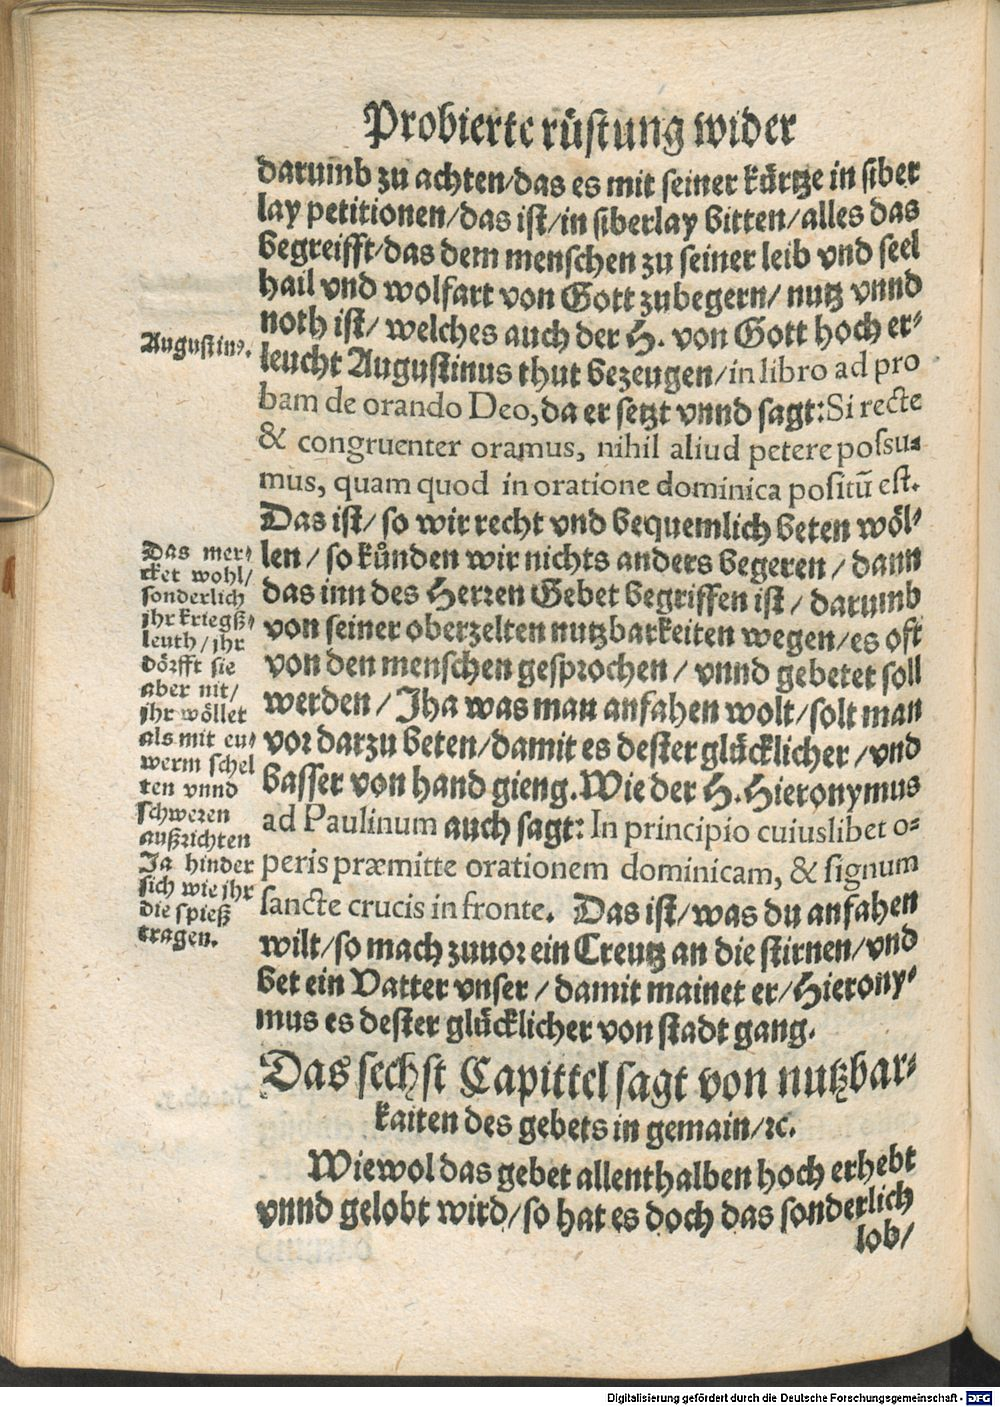 Probierte rüstung wider
darumb zu achten/das es mit seiner kürtze in siber
lay petitionen/das ist/in siberlay bitten/alles das
begreifft/das dem menschen zu seiner leib vnd seel
hail vnd wolfart von Gott zubegern/ nutz vnnd
noth ist/ welches auch der H. von Gott hoch er⸗
leucht Augustinus thut bezeugen/in libro ad pro
bam de orando Deo,da er setzt vnnd sagt:Si recte
& congruenter oramus, nihil aliud petere possu⸗
mus, quam quod in oratione dominica positū est.
Das ist/ so wir recht vnd bequemlich beten wöl⸗
len / so kůnden wir nichts anders begeren / dann
das inn des Herren Gebet begriffen ist / darumb
von seiner oberzelten nutzbarkeiten wegen/es oft
von den menschen gesprochen / vnnd gebetet soll
werden / Jha was man anfahen wolt/solt man
vor darzu beten/damit es dester glücklicher /vnd
basser von hand gieng.Wie der H.Hieronymus
ad Paulinum auch sagt: In principio cuiuslibet o⸗
peris præmitte orationem dominicam, & signum
sancte crucis in fronte. Das ist/was du anfahen
wilt/so mach zuuor ein Creutz an die stirnen/vnd
bet ein Vatter vnser / damit mainet er/Hierony⸗
mus es dester glücklicher von stadt gang.
Das sechst Capittel sagt von nutzbar⸗
kaiten des gebets in gemain/ꝛc.
Wiewol das gebet allenthalben hoch erhebt
vnnd gelobt wird/so hat es doch das sonderlich
lob/
Augustinꝰ.
Das mer⸗
cket wohl/
sonderlich
jhr kriegß⸗
leuth/jhr
dörfft sie
aber nit/
jhr wöllet
als mit eu⸗
werm schel
ten vnnd
schweren
außrichten
Ja hinder
sich wie jhr
die spieß
tragen.
Digitalisierung gefördert durch die Deutsche Forschungsgemeinschaft - DFG